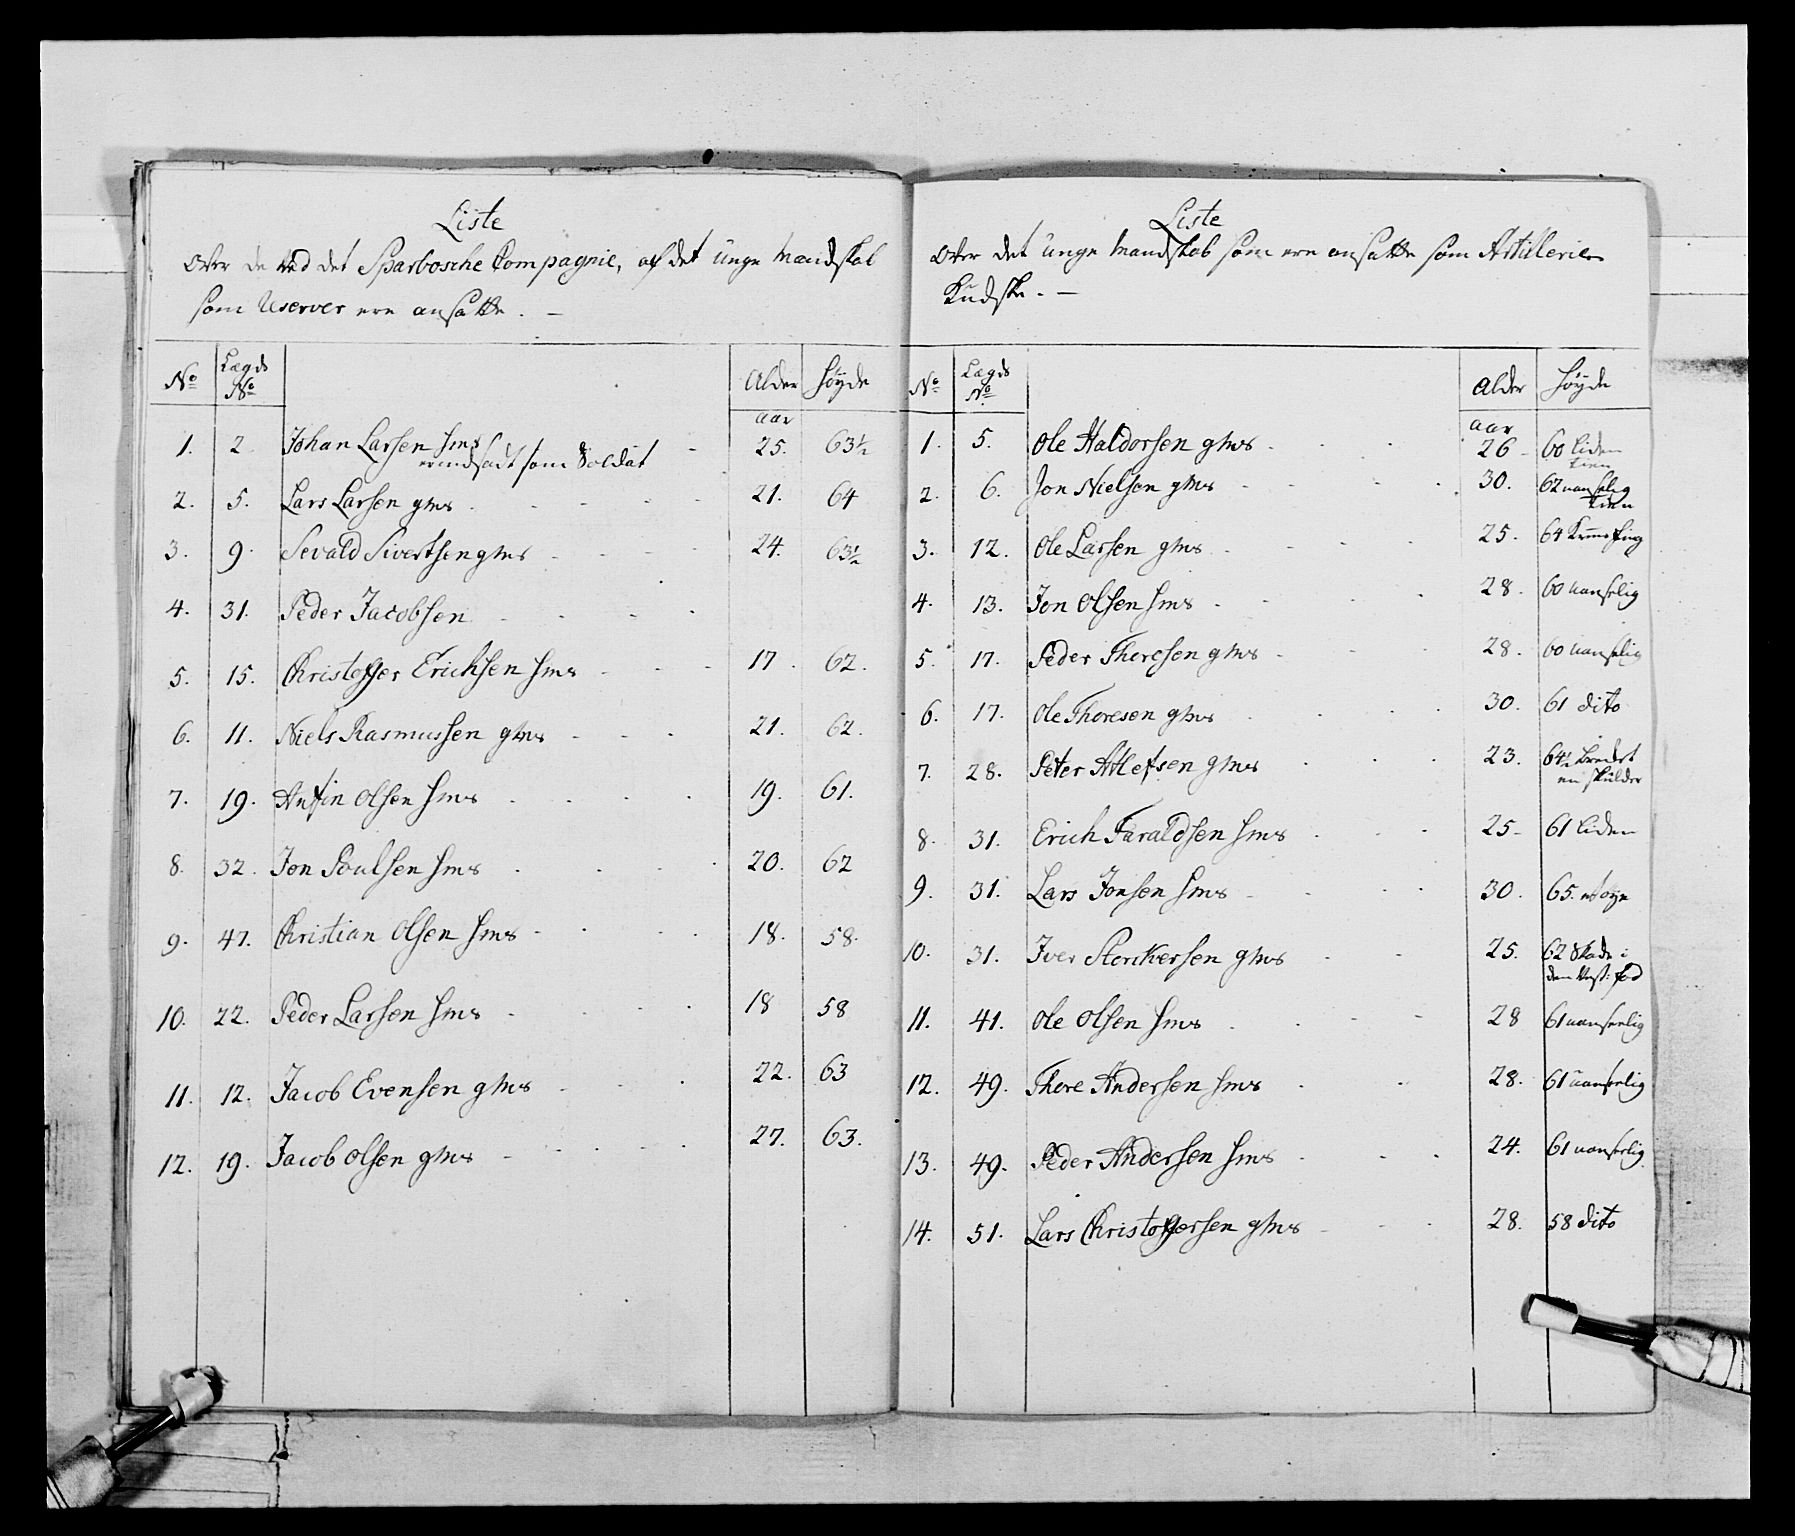 Liste
Over de ved det Sparboeske Compagnie, af det unge Mandskab
som Reserver ere ansatte. —
No Lægds No Alder Høyde
aar
1. 2. Johan Larsen hms 25. 63½
er indsadt som Soldat
2. 5. Lars Larsen gms 21. 64
3. 9. Sevald Sivertsen gms 24. 63½
4. 31. Peder Jacobsen
5. 15. Christopher Erichsen hms 17. 62.
6. 11. Niels Rasmussen gms 21. 62.
7. 19. Anfin Olsen hms 19. 61.
8. 32. Jon Poulsen hms 20. 62
9. 47. Christian Olsen hms 18. 58.
10. 22. Peder Larsen hms 18 58
11. 12. Jacob Evensen gms 22. 63
12. 19. Jacob Olsen gms 27. 63.
Liste
Over det unge Mandskab som ere ansatte som Artillerie
Kudske. —
No Lægds No Alder Høyde
aar
1. 5. Ole Haldorsen gms 26 60 liden
2. 6. Jon Nielsen gms 30. 62 uanselig
3. 12. Ole Larsen gms 25. 64
4. 13. Jon Olsen hms 28. 60 uanselig
5. 17. Peder Thoresen gms 28. 60 uanselig
6. 17. Ole Thoresen gms 30. 61 dito
7. 28. Peter Atlefsen gms 23. 64½
en skulder
8. 31. Erich Taraldsen hms 25 61 liden
9. 31. Lars Jonsen hms 30. 65.
10. 31. Iver Storkersen gms 25. 62 Skade i
fod
11. 41. Ole Olsen hms 28 61 uanseelig
12. 49. Thore Andersen hms 28. 61 uanseelig
13. 49. Peder Andersen hms 24. 61 uanselig
14. 51. Lars Christophersen gms 28. 58 dito